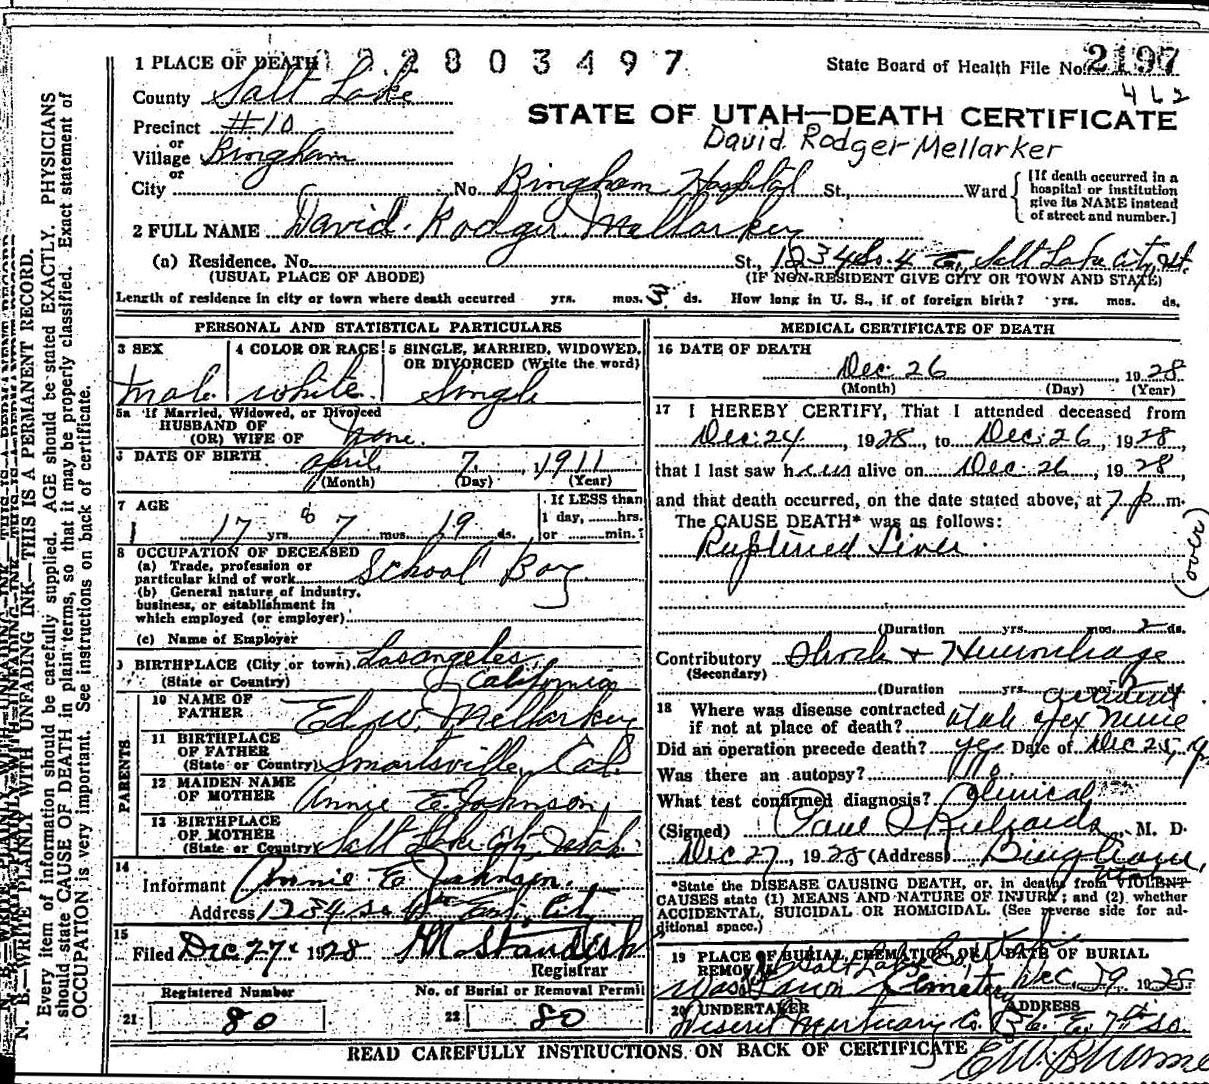 1 PLACE OF DEATH 2 8 0 3 4 9 7
State Board of Health File No. 2197
462
County Salt Lake
STATE OF UTAH—DEATH CERTIFICATE
Precinct #10
David Rodger Mellarker
or
Village Bingham
or
City No. Bingham Hospital St., Ward
[If death occurred in a hospital or institution give its NAME instead of street and number.]
2 FULL NAME David Rodger Mellarkey
(a) Residence. No. St., 1234 So. 4 E., Salt Lake City, Ut.
(USUAL PLACE OF ABODE) (IF NON-RESIDENT GIVE CITY OR TOWN AND STATE)
Length of residence in city or town where death occurred yrs. mos. 3 ds. How long in U. S., if of foreign birth? yrs. mos. ds.
PERSONAL AND STATISTICAL PARTICULARS
3 SEX 4 COLOR OR RACE 5 SINGLE, MARRIED, WIDOWED,
OR DIVORCED (Write the word)
male white Single
5a If Married, Widowed, or Divorced
HUSBAND OF
(OR) WIFE OF None.
DATE OF BIRTH April 7, 1911
(Month) (Day) (Year)
7 AGE If LESS than
1 day, hrs.
17 yrs. 8 7 mos. 19 ds. or min.
8 OCCUPATION OF DECEASED
(a) Trade, profession or
particular kind of work School Boy
(b) General nature of industry,
business, or establishment in
which employed (or employer)
(c) Name of Employer
9 BIRTHPLACE (City or town) Los angeles,
(State or Country) California
PARENTS
10 NAME OF
FATHER Edw. Mellarkey
11 BIRTHPLACE
OF FATHER
(State or Country) Smartsville, Cal.
12 MAIDEN NAME
OF MOTHER Annie E. Johnson,
13 BIRTHPLACE
OF MOTHER
(State or Country) Salt Lake City, Utah.
14
Informant Annie E. Johnson.
Address 1234 So. East, City
15
Filed Dec 27, 1928 HM Standish
Registrar
Registered Number No. of Burial or Removal Permit
21 80 22 80
MEDICAL CERTIFICATE OF DEATH
16 DATE OF DEATH
Dec. 26, 1928
(Month) (Day) (Year)
17 I HEREBY CERTIFY, That I attended deceased from
Dec. 24, 1928, to Dec. 26, 1928,
that I last saw him alive on Dec. 26, 1928,
and that death occurred, on the date stated above, at 7 p m.
The CAUSE DEATH* was as follows:
Ruptured Liver.
(over)
(Duration yrs. mos. 2 ds.
Contributory Shock + Hemorrhage
(Secondary)
(Duration yrs. mos.
18 Where was disease contracted
if not at place of death? Utah Apex Mine
Did an operation precede death? yes Date of Dec 25,
Was there an autopsy? No.
What test confirmed diagnosis? Clinical
(Signed) Paul S Richards, M. D.
Dec 27, 1928 (Address) Bingham,
Utah
*State the DISEASE CAUSING DEATH, or, in deaths from VIOLENT
CAUSES state (1) MEANS AND NATURE OF INJURY; and (2) whether
ACCIDENTAL, SUICIDAL OR HOMICIDAL. (See reverse side for ad-
ditional space.)
19 PLACE OF BURIAL, CREMATION, OR DATE OF BURIAL
REMOVAL Salt Lake Co., Utah
Wasatch Lawn Cemetery Dec. 29 1928
20 UNDERTAKER ADDRESS
Deseret Mortuary Co. 36 E. 7th So.
READ CAREFULLY INSTRUCTIONS ON BACK OF CERTIFICATE
N. B.—WRITE PLAINLY WITH UNFADING INK—THIS IS A PERMANENT RECORD.
Every item of information should be carefully supplied. AGE should be stated EXACTLY. PHYSICIANS
should state CAUSE OF DEATH in plain terms, so that it may be properly classified. Exact statement of
OCCUPATION is very important. See instructions on back of certificate.